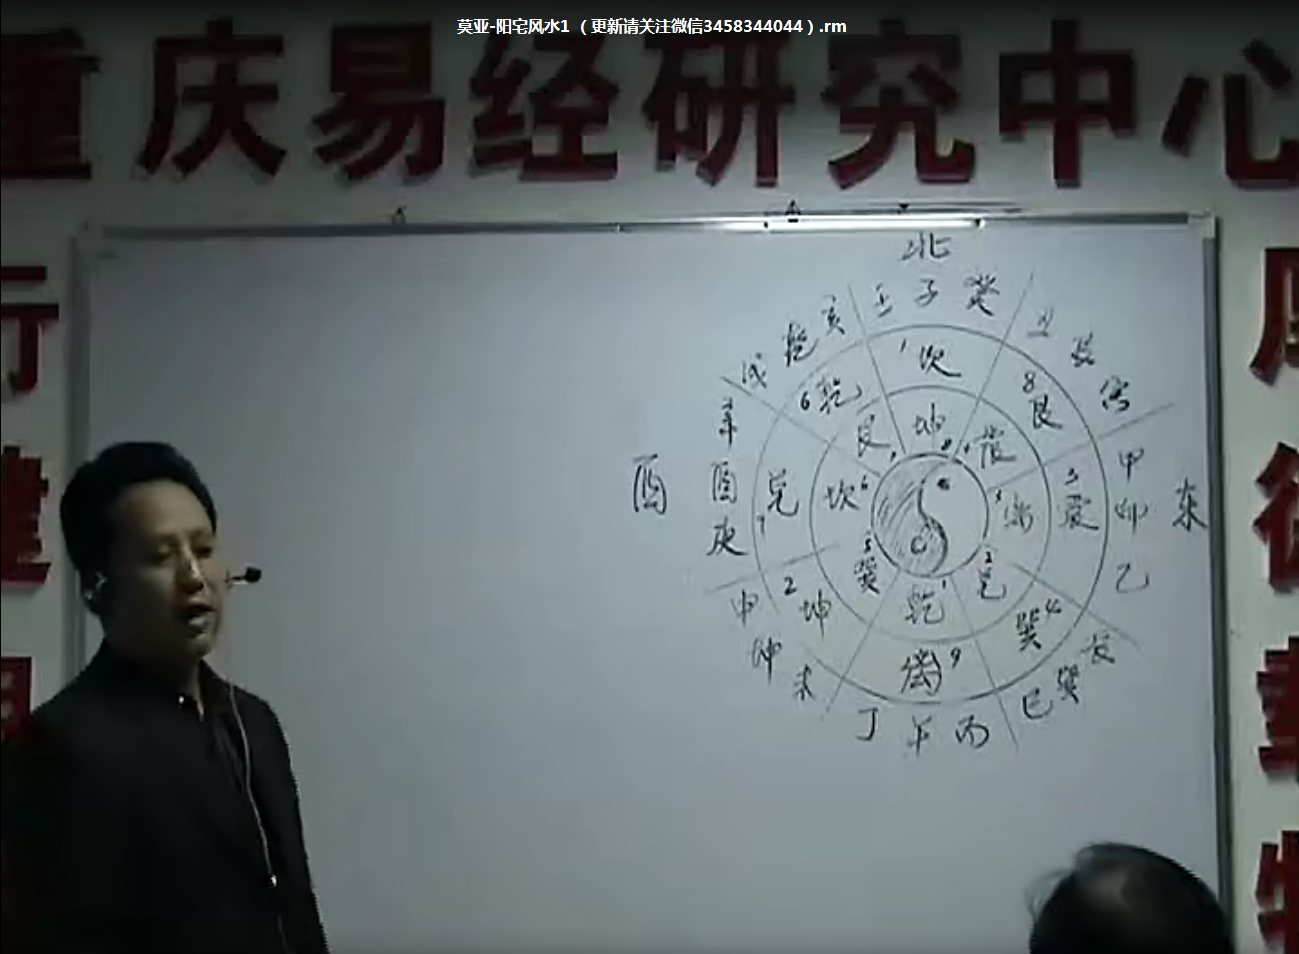 莫亚-阳宅风水1 （更新请关注微信3458344044）.rm
重庆易经研究中心
行
健
厚
德
载
物
北
壬 子 癸
丑 艮 寅
甲 卯 乙
东
辰 巽 巳
丙 午 丁
未 坤 申
庚 酉 辛
酉
戌 乾 亥
1 坎
8 艮
3 震
4 巽
9 离
2 坤
7 兑
6 乾
坤 8
震
3 离
2 兑
乾 1
5 巽
坎 6
艮